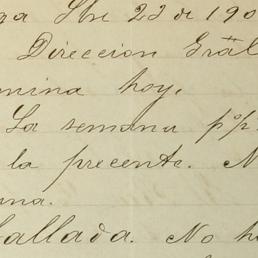 ga Sbre 23 de 190
Direccion Gräl
mina hoy,
La semana pºp
la precente. N
na.
allada. No h